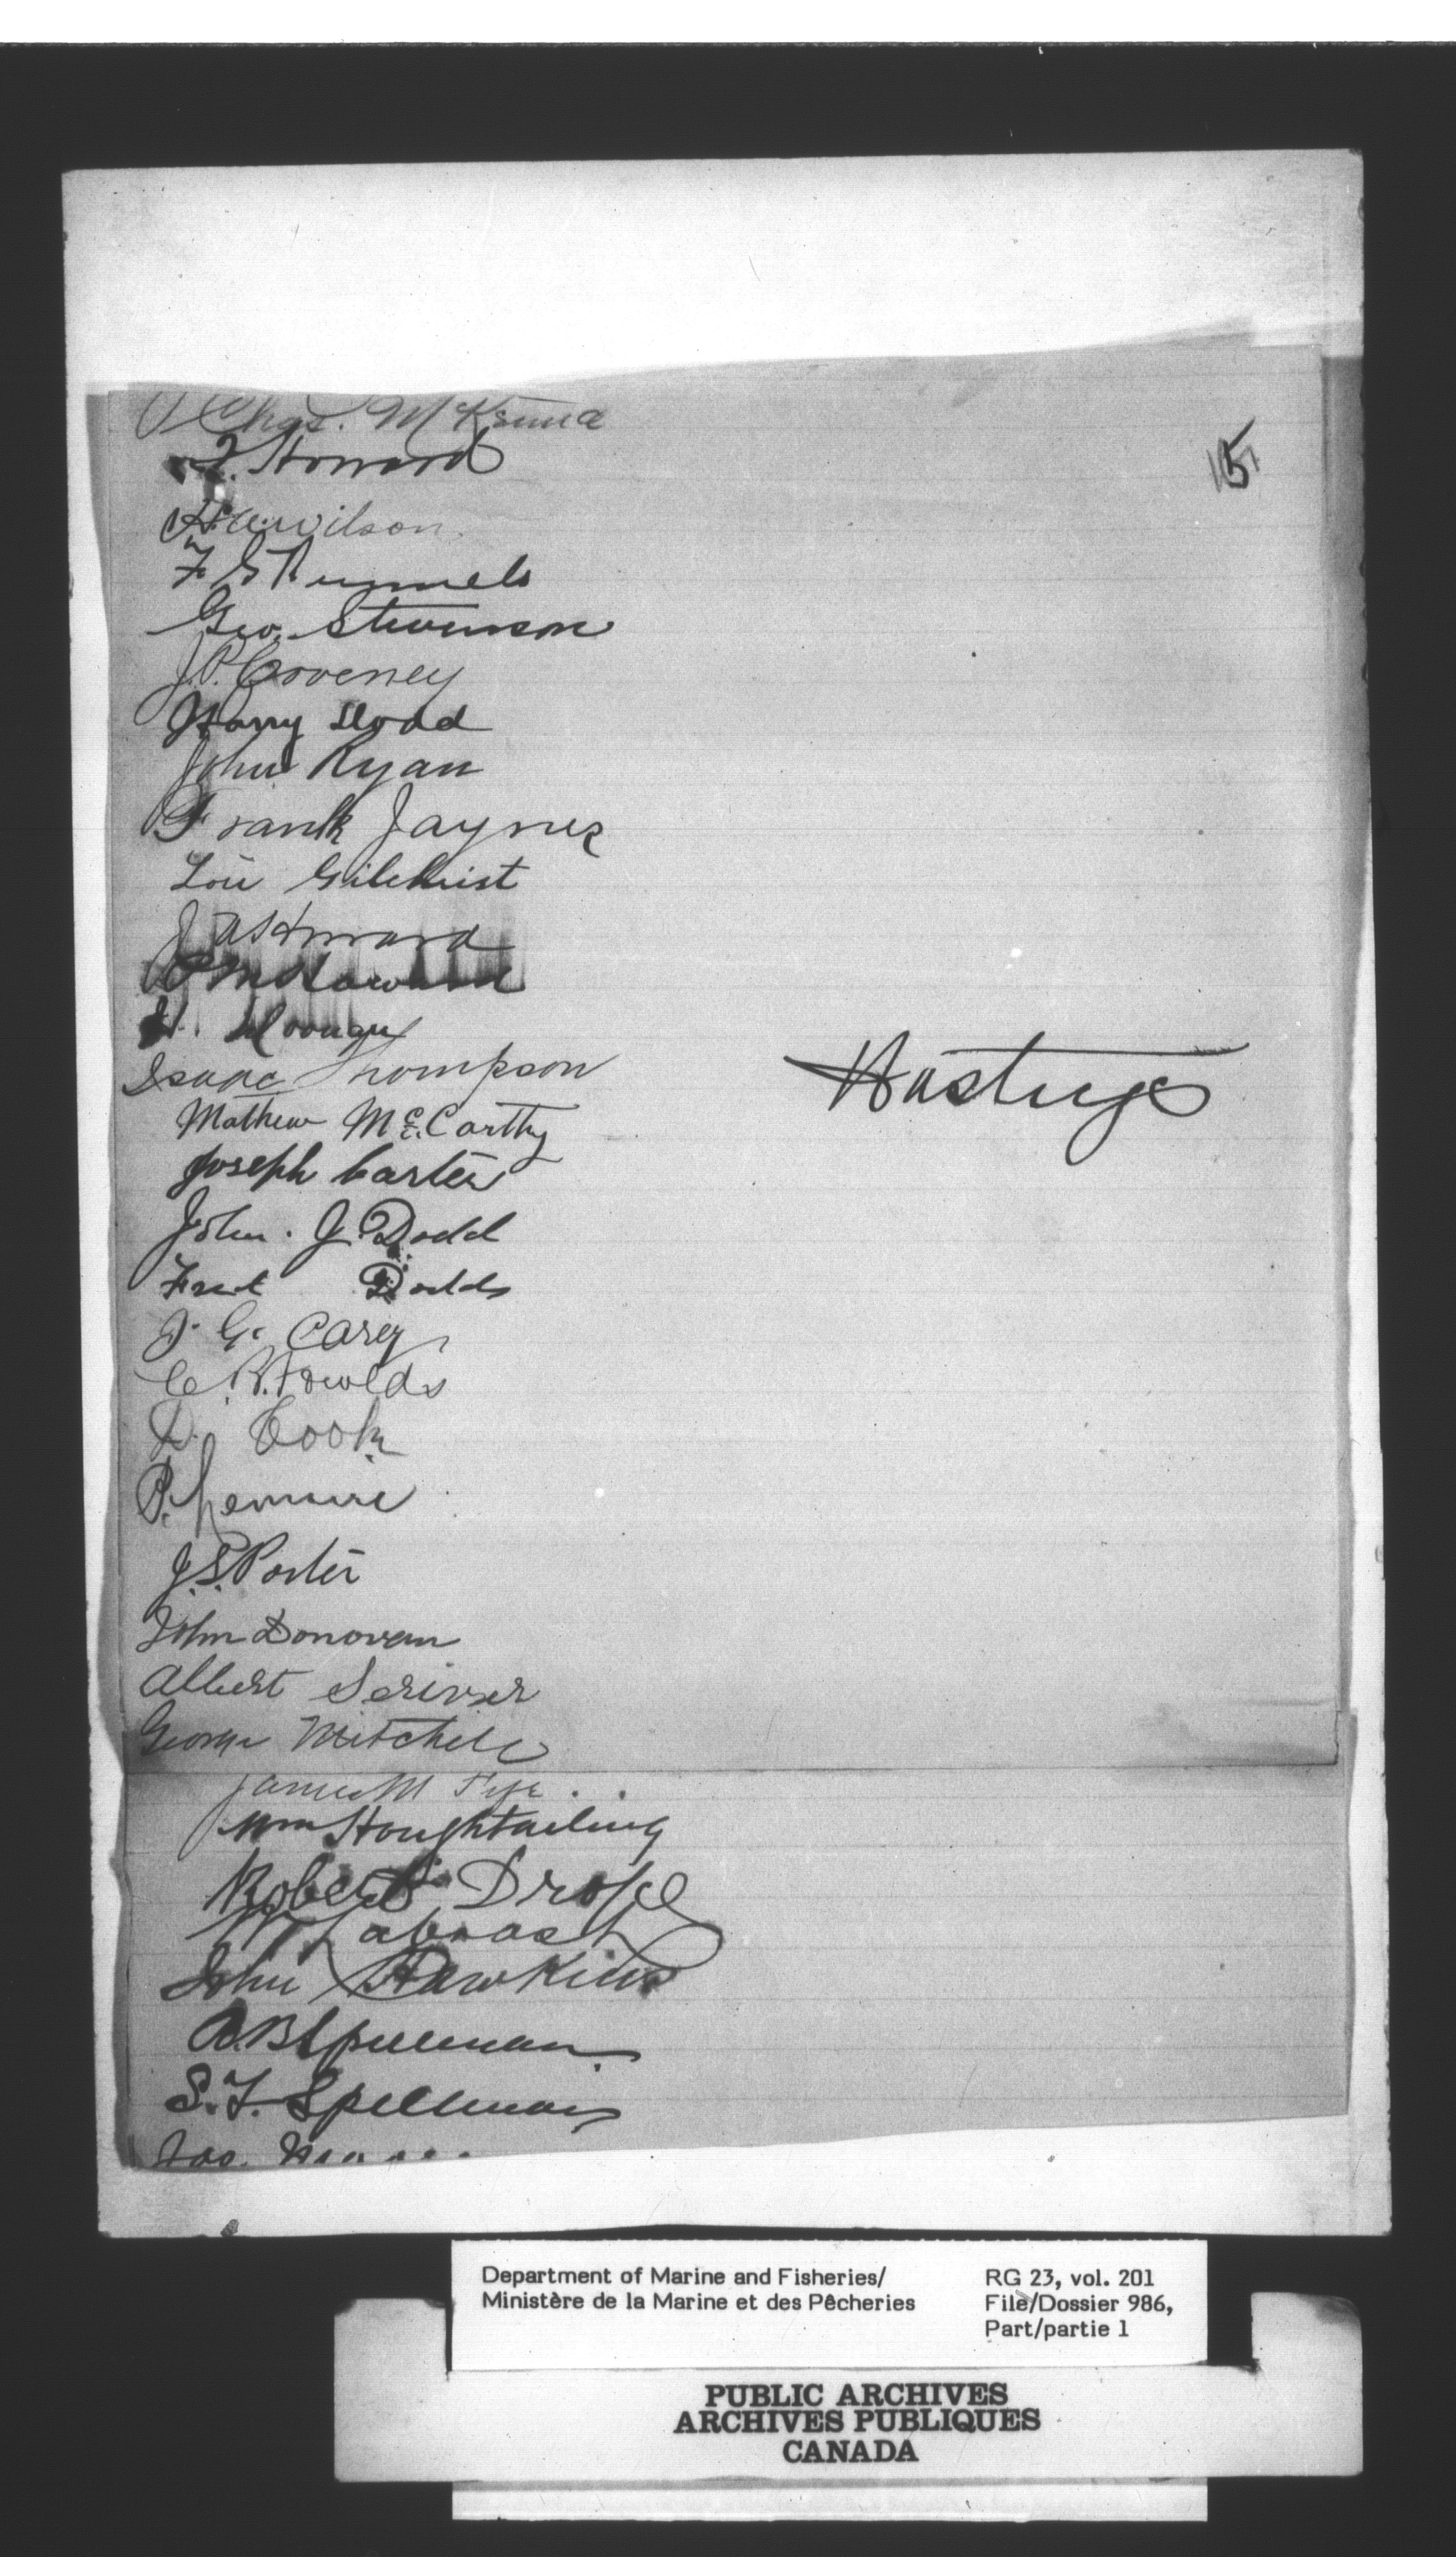 Chas. McKenna
15
F. Howard
H. W. Wilson
F G Runnels
Geo. Stevenson
J. P. Coveney
Harry Dodd
John Ryan
Frank Jaynes
Lou Gilchrist
J A Howard
P M Howard
H.
Isaac Thompson
Hastings
Mathew McCarthy
Joseph Carter
John. J. Dodd
Fred Dodds
J. G. Carey
C. R. Fowlds
D. Cook
P. Lemire
J. S. Porter
John Donovan
Albert Scriver
George Mitchell
James M
Wm Houghtailing
Robert Drope
W Labrash
John Hawkins
A. B Spellman
S. F. Spellman
Jas.
Department of Marine and Fisheries/
Ministère de la Marine et des Pêcheries
RG 23, vol. 201
File/Dossier 986,
Part/partie 1
PUBLIC ARCHIVES
ARCHIVES PUBLIQUES
CANADA